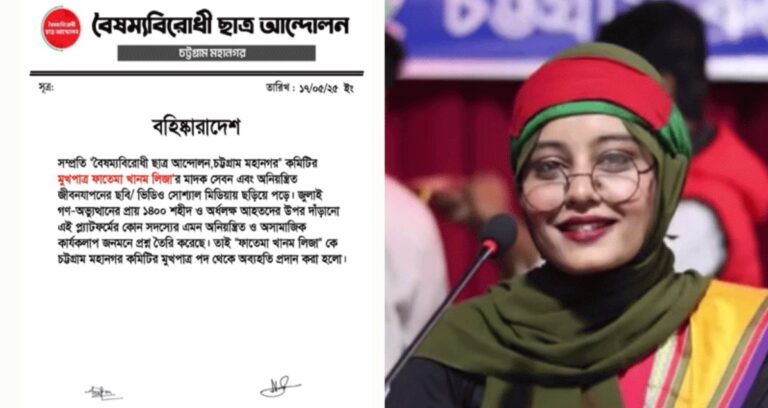 বৈষম্যবিরোধী
ছাত্র আন্দোলন
বৈষম্যবিরোধী ছাত্র আন্দোলন
চট্টগ্রাম মহানগর
সূত্র:
তারিখ : ১৭/০৫/২৫ ইং
বহিষ্কারাদেশ
সম্প্রতি "বৈষম্যবিরোধী ছাত্র আন্দোলন,চট্টগ্রাম মহানগর" কমিটির
মুখপাত্র ফাতেমা খানম লিজা'র মাদক সেবন এবং অনিয়ন্ত্রিত
জীবনযাপনের ছবি/ ভিডিও সোশ্যাল মিডিয়ায় ছড়িয়ে পড়ে। জুলাই
গণ-অভ্যুত্থানের প্রায় ১৪০০ শহীদ ও অর্ধলক্ষ আহতদের উপর দাঁড়ানো
এই প্ল্যাটফর্মের কোন সদস্যের এমন অনিয়ন্ত্রিত ও অসামাজিক
কার্যকলাপ জনমনে প্রশ্ন তৈরি করেছে। তাই "ফাতেমা খানম লিজা" কে
চট্টগ্রাম মহানগর কমিটির মুখপাত্র পদ থেকে অব্যহতি প্রদান করা হলো।